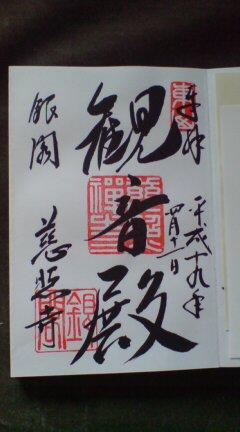 奉拝
平成十九年
四月十一日
観音殿
銀閣
慈照寺